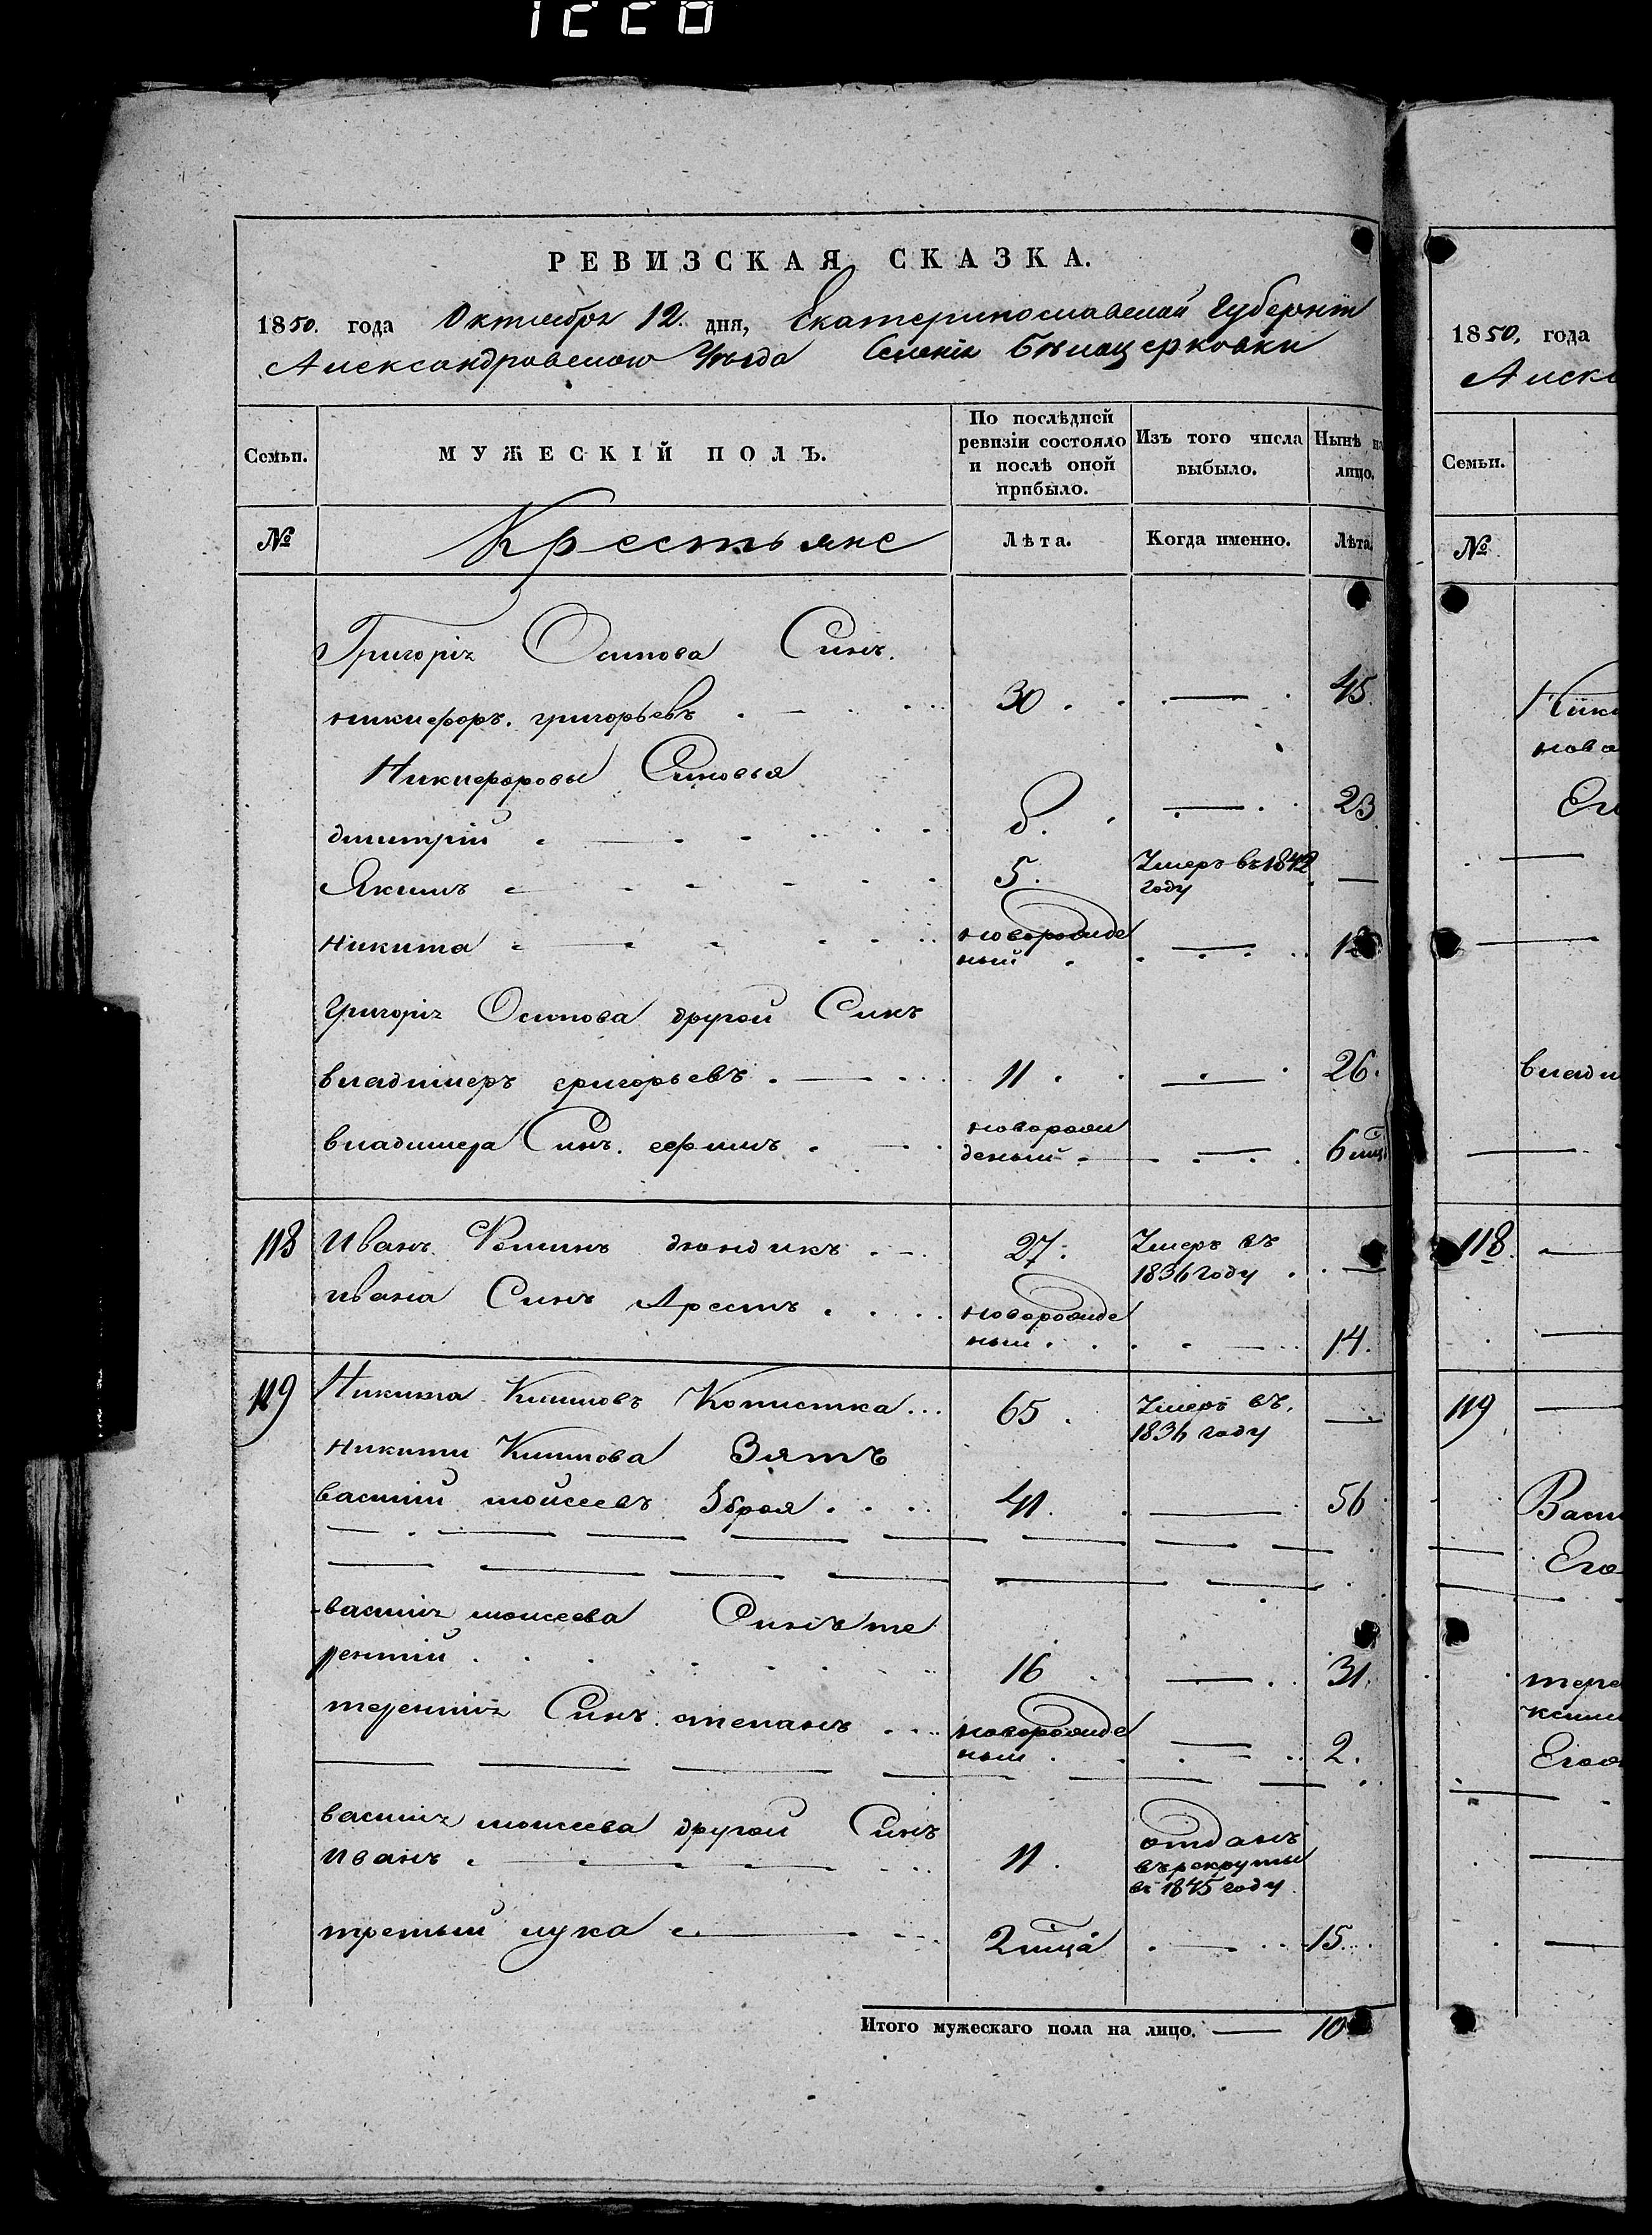 1220
РЕВИЗСКАЯ СКАЗКА.
1850. года Октября 12. дня, Екатеринославской Губерніи
Александровского Уезда Селенія Белоцерковки
Семьи.
МУЖЕСКІЙ ПОЛЪ.
По послѣдней ревизіи состояло и послѣ оной прибыло.
Изъ того числа выбыло.
Нынѣ на лицо.
№
Крестьяне
Лѣта.
Когда именно.
Лѣта.
Григорія Осипова Синъ.
никифоръ. григорьевъ 30 — 45.
Никифоровы Синовья
дмитрій 8. — 23
Якимъ 5. Умеръ въ 1842 году —
никита новорожде ный —
Григорія Осипова другой Синъ
владимеръ григорьевъ 11 — 26.
владимера Синъ. ефимъ новорож деный — 6 мцъ
118 Иванъ Фоминъ дюндикъ 27. Умеръ въ 1836 году —
ивана Синъ Арестъ новорожде ный 14.
119 Никита Климовъ Копистка 65. Умеръ въ. 1836 году —
никити Климова Зятъ
василій мойсеевъ Зброя 41. — 56
василія моисеева Синъ те
рентій 16 — 31.
терентія Синъ. степанъ новорожде ный — 2.
василія моисеева другой Синъ
иванъ 11. отданъ въ рекруты въ 1845 году
третьий лука 2 мца — 15.
Итого мужескаго пола на лицо. — 10
1850. года
Алекс
Семьи.
№
Ники
ново
Ег
влади
118.
119
Васи
Его
тере
ксим
Его